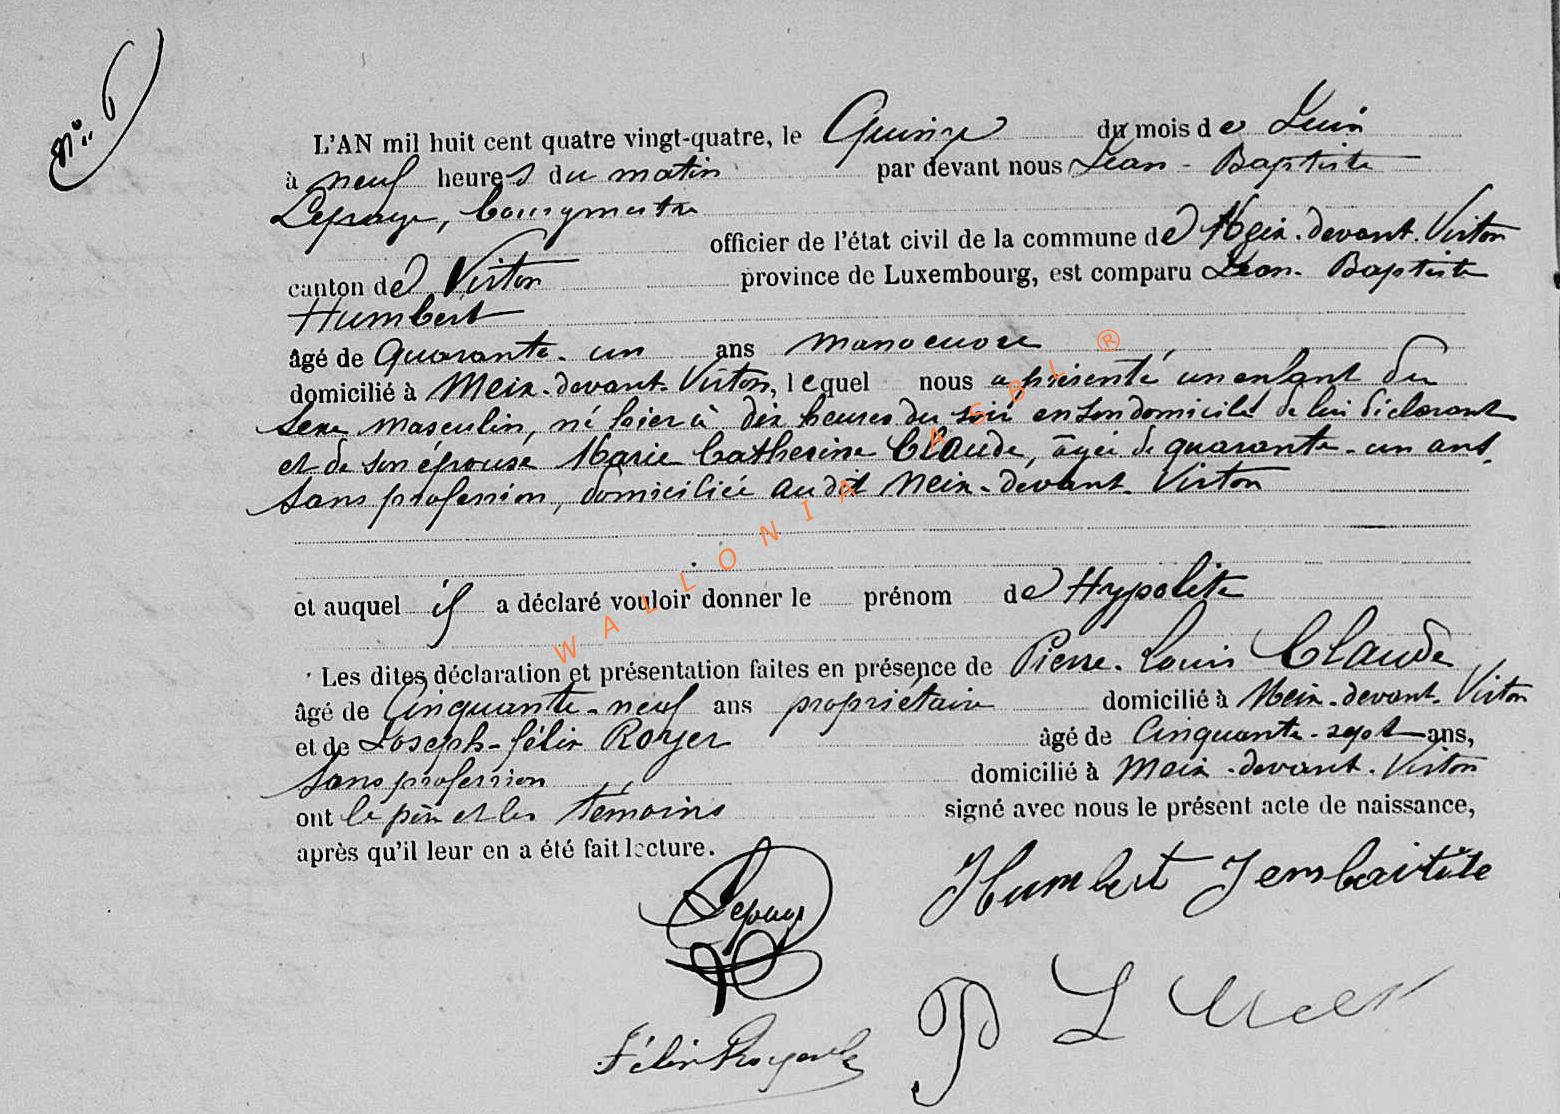 N° 6
L'AN mil huit cent quatre vingt-quatre, le Quinze du mois de Juin
à neuf heures du matin par devant nous Jean-Baptiste
Lepage, bourgmestre
officier de l'état civil de la commune de Meix-devant-Virton
canton de Virton province de Luxembourg, est comparu Jean-Baptiste
Humbert
âgé de Quarante-un ans manoeuvre
domicilié à Meix-devant-Virton, lequel nous a présenté un enfant du
sexe masculin, né hier à dix heures du soir en son domicile de lui déclarant
et de son épouse Marie Catherine Claude, âgée de quarante-un ans,
sans profession, domiciliée audit Meix-devant-Virton
et auquel il a déclaré vouloir donner le prénom de Hypolite
Les dites déclaration et présentation faites en présence de Pierre-Louis Claude
âgé de Cinquante-neuf ans propriétaire domicilié à Meix-devant-Virton
et de Joseph-Félix Royer âgé de Cinquante-sept ans,
sans profession domicilié à Meix-devant-Virton
ont le père et les témoins signé avec nous le présent acte de naissance,
après qu'il leur en a été fait lecture.
Lepage Humbert Jensbaitite
P L
Félix
WALLONIA ASBL ®